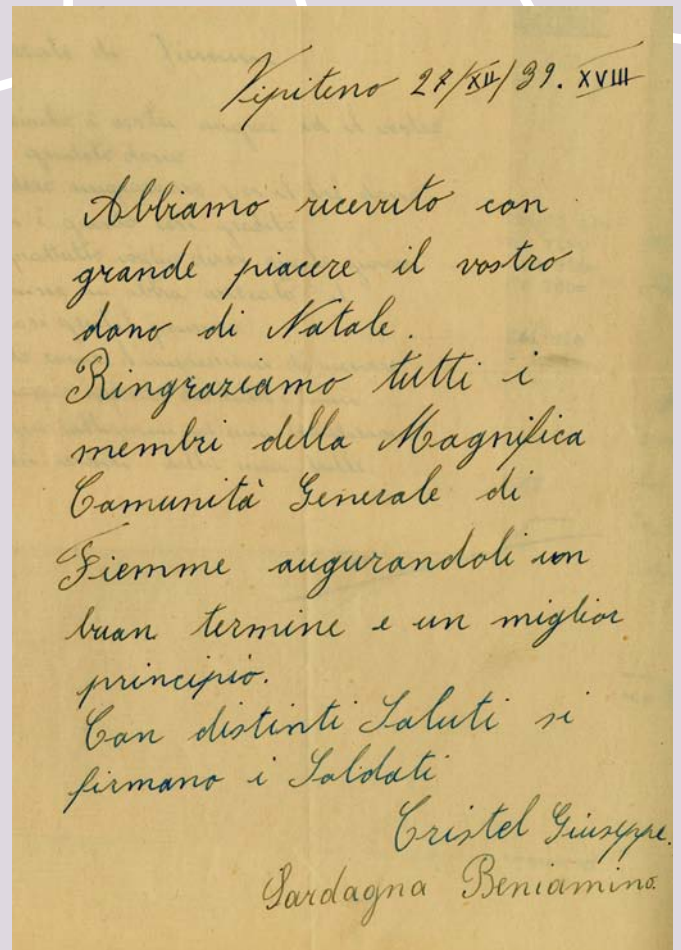 Vipiteno 27/XII/39. XVIII
Abbiamo ricevuto con
grande piacere il vostro
dono di Natale.
Ringraziamo tutti i
membri della Magnifica
Comunità Generale di
Fiemme augurandoli un
buon termine e un miglior
principio.
Con distinti Saluti si
firmano i Soldati
Cristel Giuseppe.
Sardagna Beniamino.